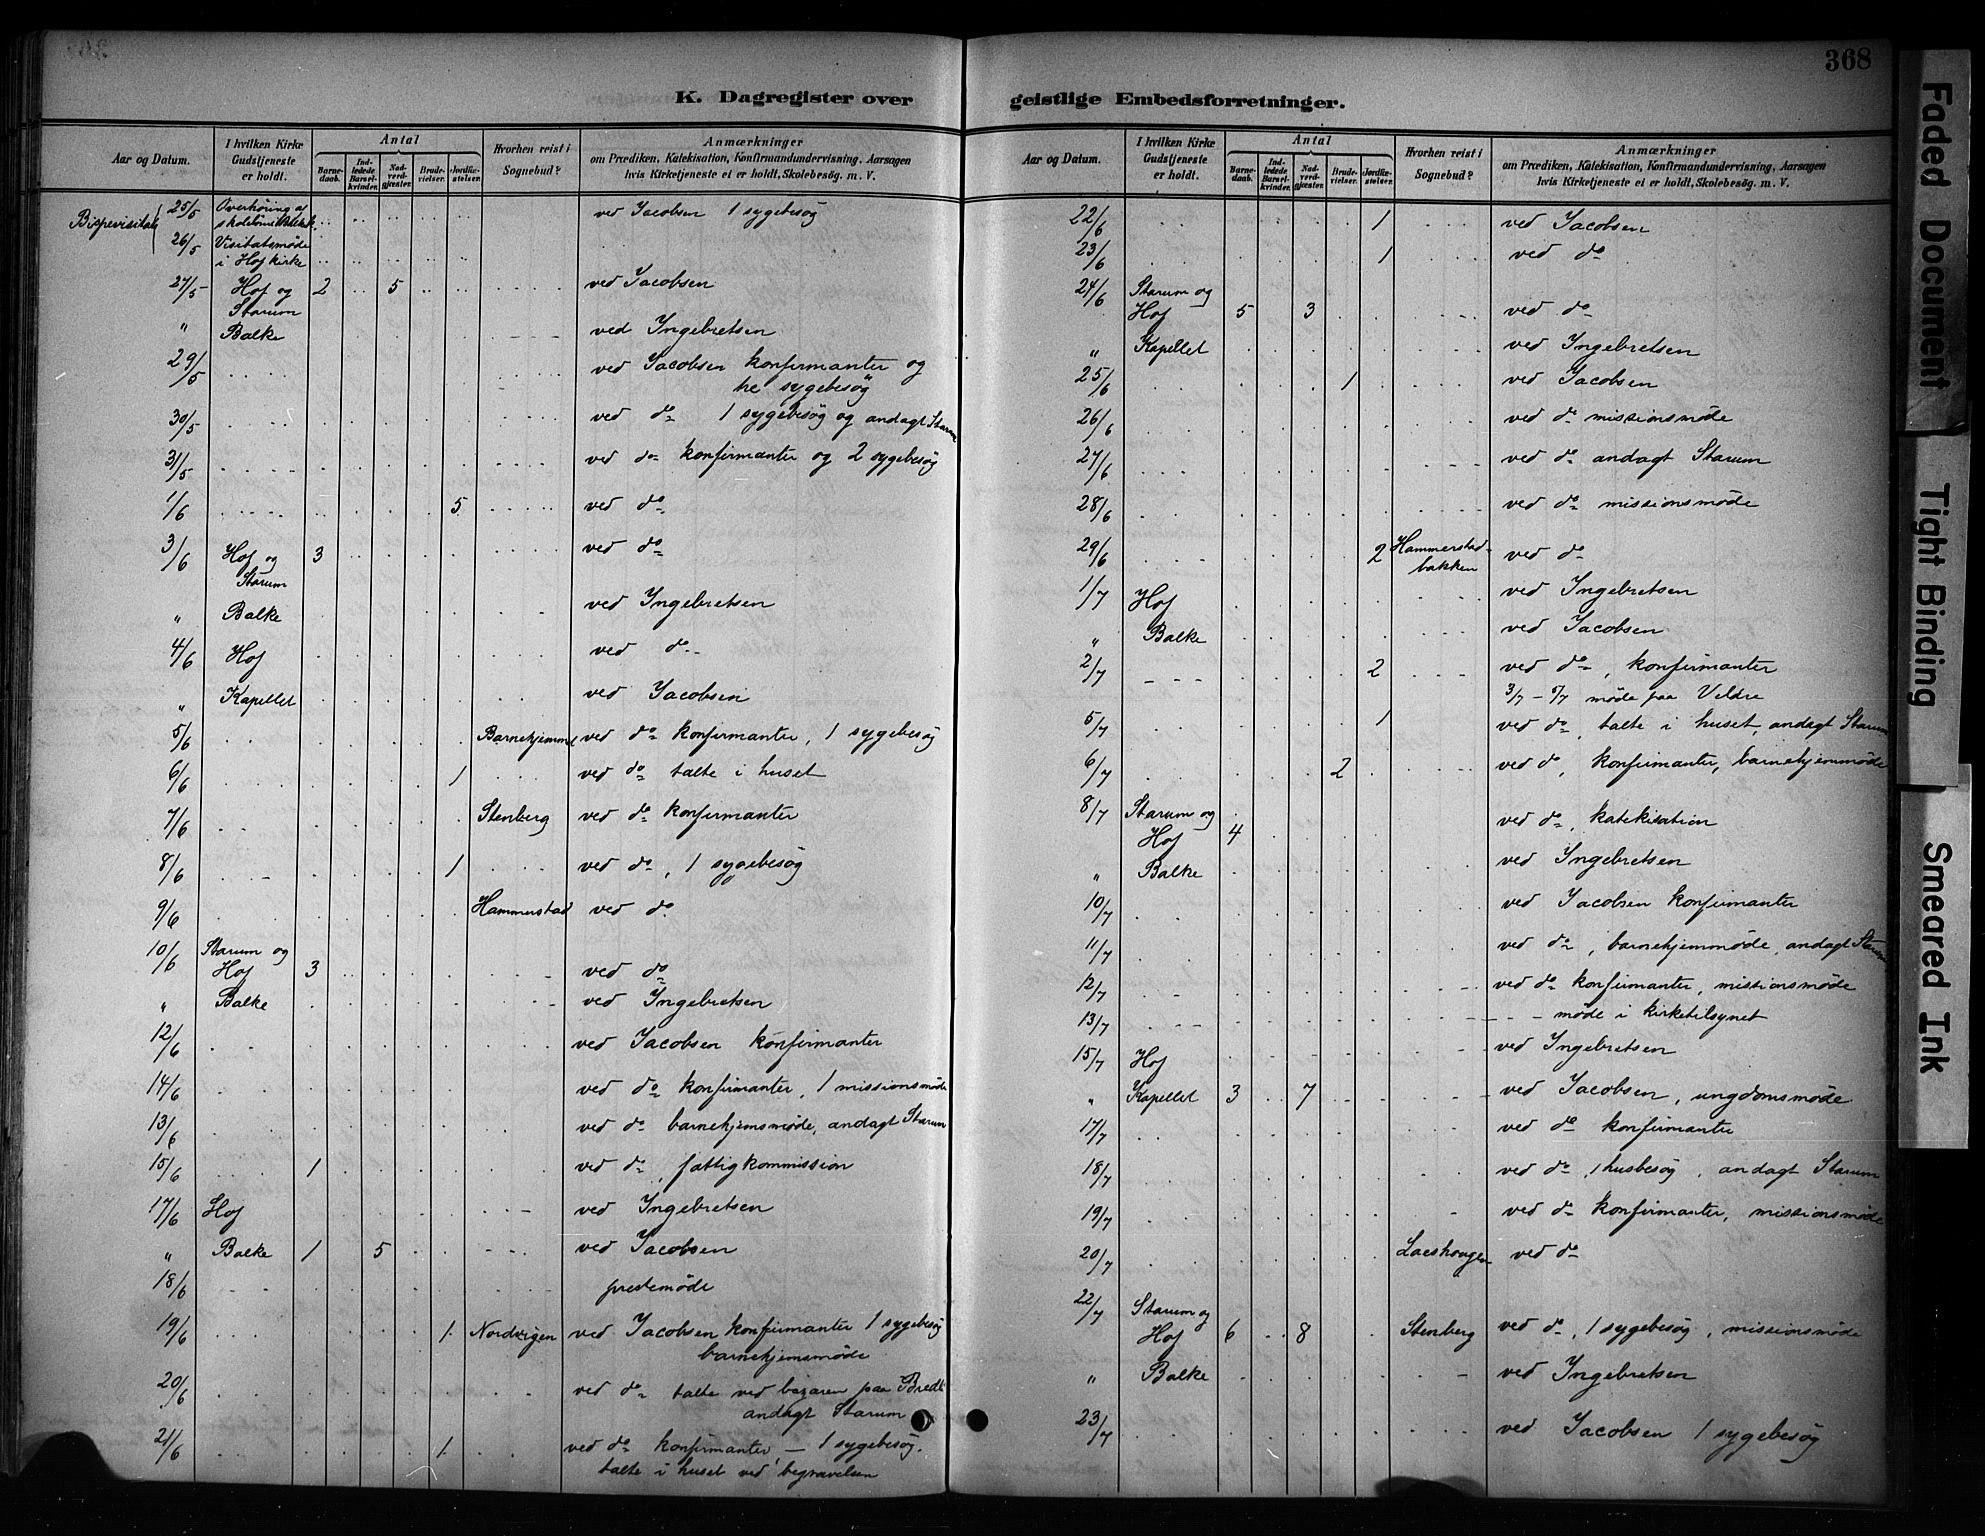 368
K. Dagregister over
geistlige Embedsforretninger.
Aar og Datum.
I hvilken Kirke Gudstjeneste er holdt.
Antal
Barne-daab.
Ind-ledede Barsel-kvinder.
Nad-verd-gjæster.
Brude-vielser.
Jordfæ-stelser.
Hvorhen reist i Sognebud?
Anmærkninger
om Prædiken, Katekisation, Konfirmandundervisning, Aarsagen
hvis Kirketjeneste ei er holdt, Skolebesøg. m. V.
Bispevisitats 25/5 Overhøring af ved Jacobsen 1 sygebesøg
26/5 Visitatsmøde
i Hof kirke
27/5 Hof og 2 5 ved Jacobsen
Starum
" Balke ved Ingebretsen
29/5 ved Jacobsen konfirmanter og
tre sygebesøg
30/5 ved do 1 sygebesøg og andagt Starum
31/5 ved do konfirmanter og 2 sygebesøg
1/6 5 ved do
3/6 Hof og 3 ved do
Starum
" Balke ved Ingebretsen
4/6 Hof ved do
" Kapellet ved Jacobsen
5/6 Barnehjemmet ved do konfirmanter, 1 sygebesøg
6/6 1 ved do talte i huset
7/6 Stenberg ved do konfirmanter
8/6 1 ved do, 1 sygebesøg
9/6 Hammerstad ved do
10/6 Starum og
Hof 3 ved do
" Balke ved Ingebretsen
12/6 ved Jacobsen konfirmanter
14/6 ved do konfirmanter, 1 missionsmøde
13/6 ved do barnehjemsmøde, andagt Starum
15/6 1 ved do, fattigkommission
17/6 Hof ved Ingebretsen
" Balke 1 5 ved Jacobsen
18/6 prestemøde
19/6 1 Nordvigen ved Jacobsen konfirmanter 1 sygebesøg
barnehjemsmøde
20/6 ved do talte ved bazaren paa
andagt Starum
21/6 1 ved do konfirmanter – 1 sygebesøg.
talte i huset ved begravelsen
Aar og Datum.
I hvilken Kirke Gudstjeneste er holdt.
Antal
Barne-daab.
Ind-ledede Barsel-kvinder.
Nad-verd-gjæster.
Brude-vielser.
Jordfæ-stelser.
Hvorhen reist i Sognebud?
Anmærkninger
om Prædiken, Katekisation, Konfirmandundervisning, Aarsagen
hvis Kirketjeneste ei er holdt, Skolebesøg. m. V.
22/6 1 ved Jacobsen
23/6 1 ved do
24/6 Starum og
Hof 5 3 ved do
" Kapellet ved Ingebretsen
25/6 1 ved Jacobsen
26/6 ved do missionsmøde
27/6 ved do andagt Starum
28/6 ved do missionsmøde
29/6 2 Hammerstad- ved do
bakken
1/7 Hof ved Ingebretsen
" Balke ved Jacobsen
2/7 2 ved do, konfirmanter
3/7 – 5/7 møde paa Veldre
5/7 1 ved do, talte i huset, andagt Starum
6/7 2 ved do, konfirmanter, barnehjemmøde
8/7 Starum og
Hof 4 ved do, katekisation
" Balke ved Ingebretsen
10/7 ved Jacobsen konfirmanter
11/7 ved do, barnehjemmøde, andagt Starum
12/7 ved do konfirmanter, missionsmøde
13/7 møde i kirketilsynet
15/7 Hof ved Ingebretsen
" Kapellet 3 7 ved Jacobsen, ungdomsmøde
17/7 ved do konfirmanter
18/7 ved do, 1 husbesøg, andagt Starum
19/7 ved do konfirmanter, missionsmøde
20/7 ved do
22/7 Starum og
Hof 6 8 Stenberg ved do, 1 sygebesøg, missionsmøde
" Balke ved Ingebretsen
23/7 ved Jacobsen 1 sygebesøg
Faded Document
Tight Binding
Smeared Ink